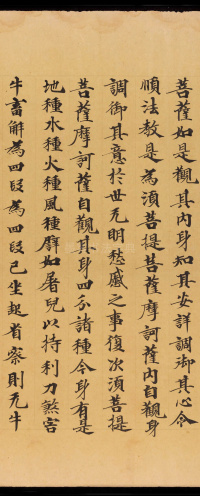 菩薩如是觀其內身知其安詳調御其心令
順法教是為須菩提菩薩摩訶薩內自觀身
調御其意於世无明愁慼之事復次須菩提
菩薩摩訶薩自觀其身四分諸種今身有是
地種水種火種風種譬如屠兒以持利刀煞害
牛畜解為四段為四段已坐起省察則无牛